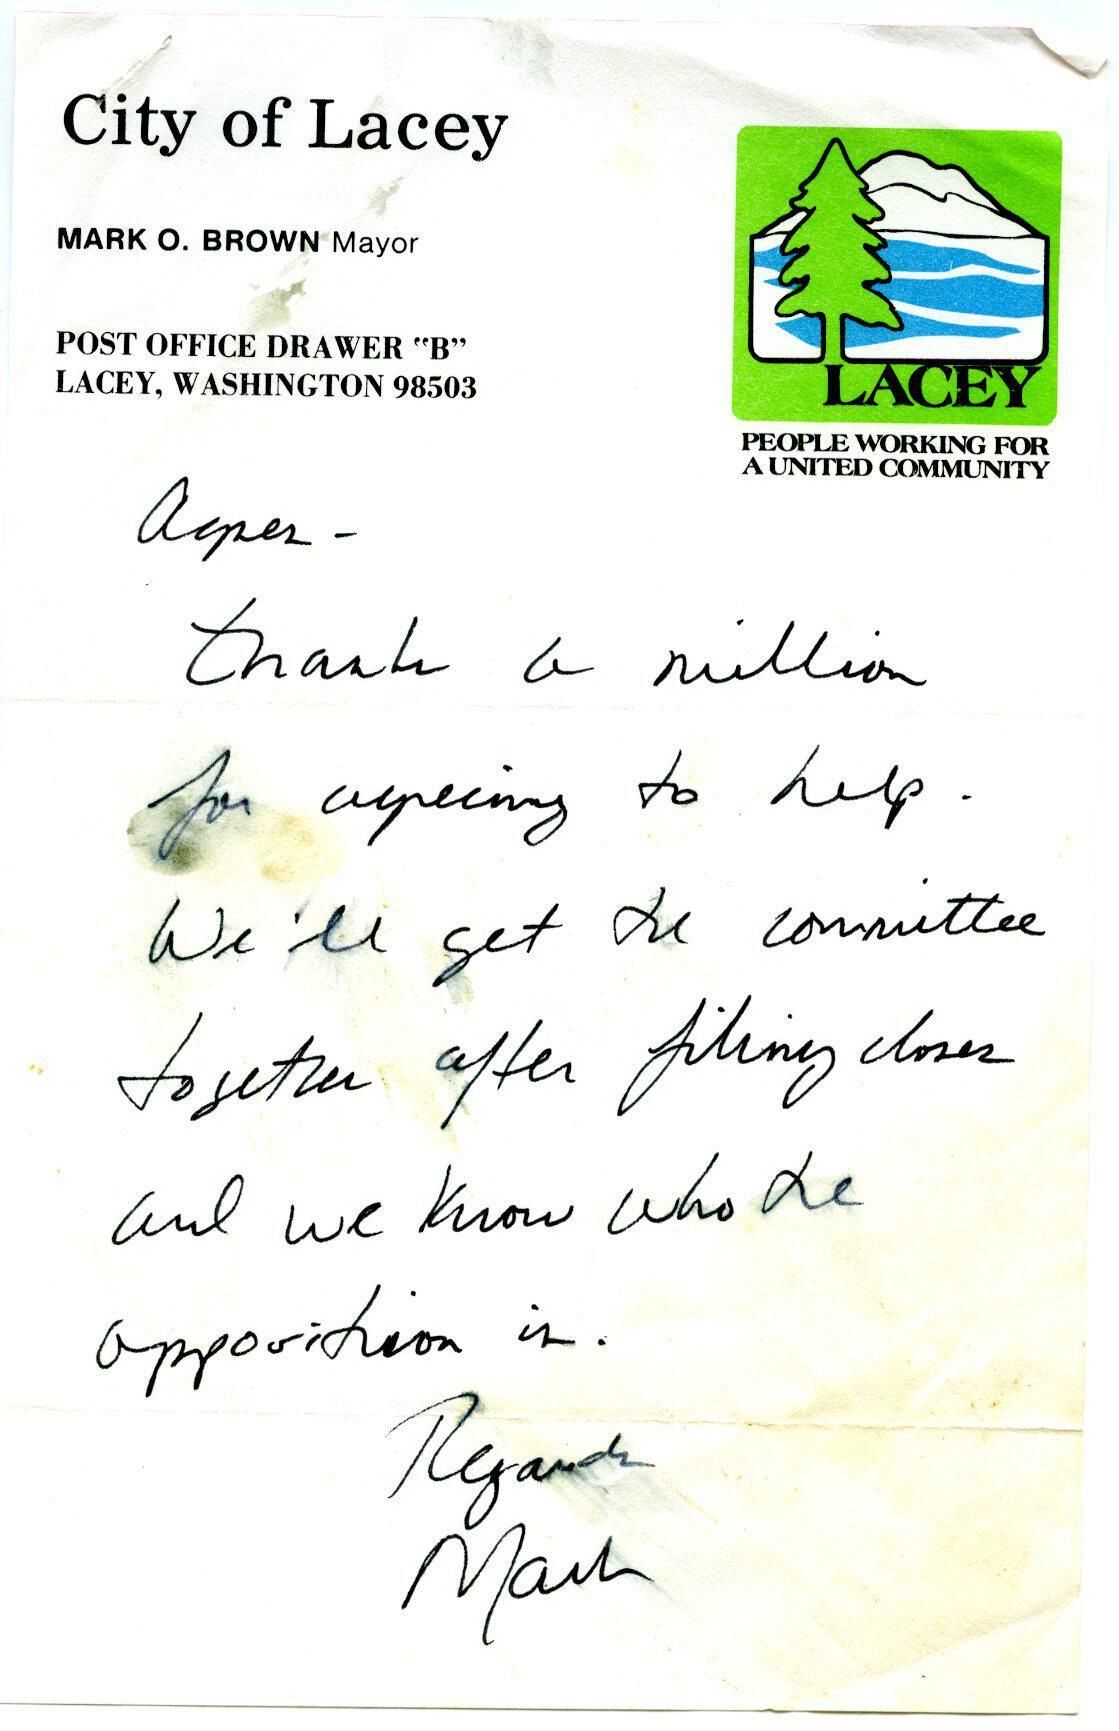 City of Lacey
MARK O. BROWN Mayor
POST OFFICE DRAWER "B"
LACEY, WASHINGTON 98503
LACEY
PEOPLE WORKING FOR
A UNITED COMMUNITY
Agnes -
Thanks a million
for agreeing to help.
We'll get the committee
together after filing closes
and we know who the
opposition is.
Regards
Mark